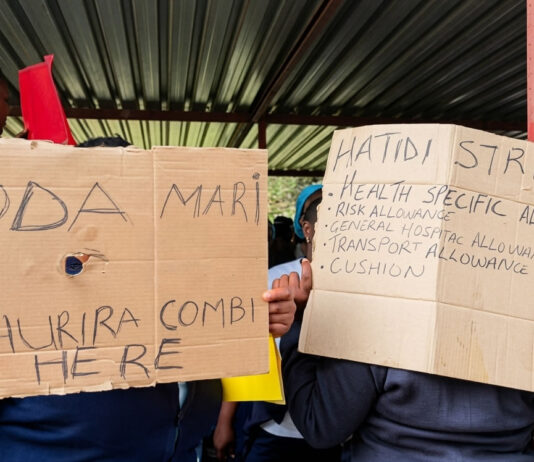 ODA MARi
HURIRA COMBI
HERE
HATIDI STR
• HEALTH SPECIFIC AL
• RISK ALLOWANCE
• GENERAL HOSPITAL ALLOWAN
• TRANSPORT ALLOWANCE
• CUSHION